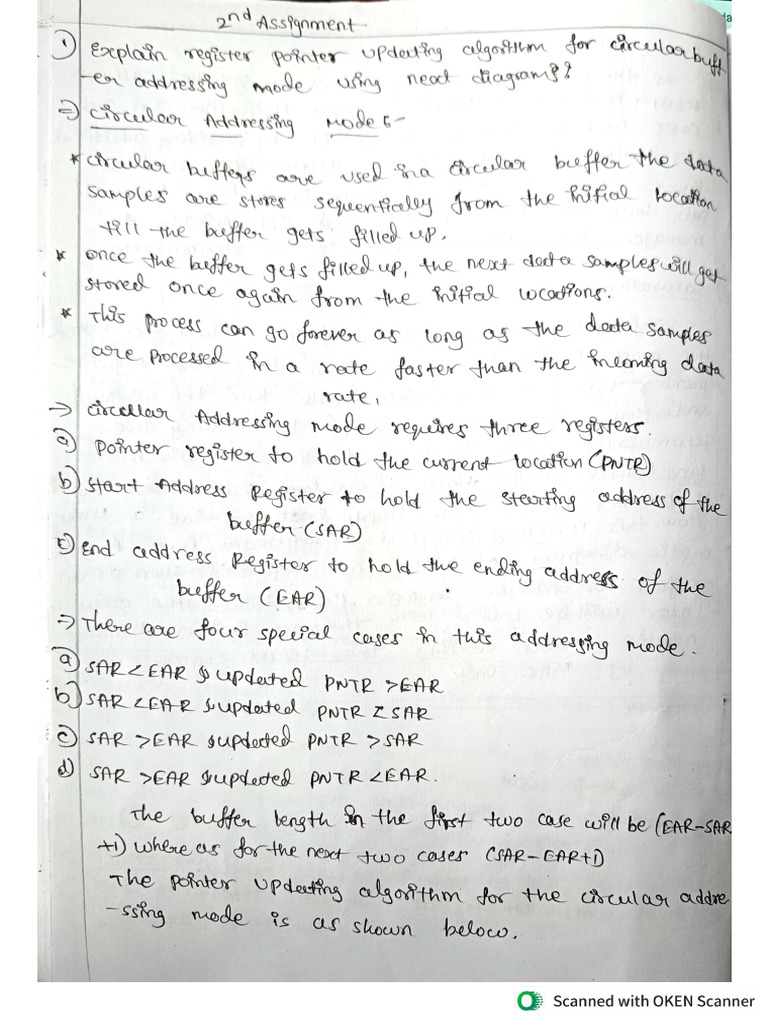 2nd Assignment
1) Explain register pointer updating algorithm for circular buff
-er addressing mode using neat diagram??
⇒ Circular Addressing Mode :-
* circular buffers are used in a circular buffer the data
samples are stores sequentically from the initial location
till the buffer gets filled up.
* once the buffer gets filled up, the next data samples will get
stored once again from the initial locations.
* This process can go forever as long as the data samples
are processed in a rate faster than the incoming data
rate,
→ circular Addressing mode requires three registers.
a) pointer register to hold the current location (PNTR)
b) start Address Register to hold the starting address of the
buffer (SAR)
c) End address Register to hold the ending address of the
buffer (EAR)
→ There are four special cases in this addressing mode.
a) SAR < EAR & updated PNTR > EAR
b) SAR < EAR & updated PNTR < SAR
c) SAR > EAR & updated PNTR > SAR
d) SAR > EAR & updated PNTR < EAR.
The buffer length in the first two case will be (EAR-SAR
+1) where as for the next two cases (SAR-EAR+1)
The pointer updating algorithm for the circular addre
-ssing mode is as shown below.
Scanned with OKEN Scanner